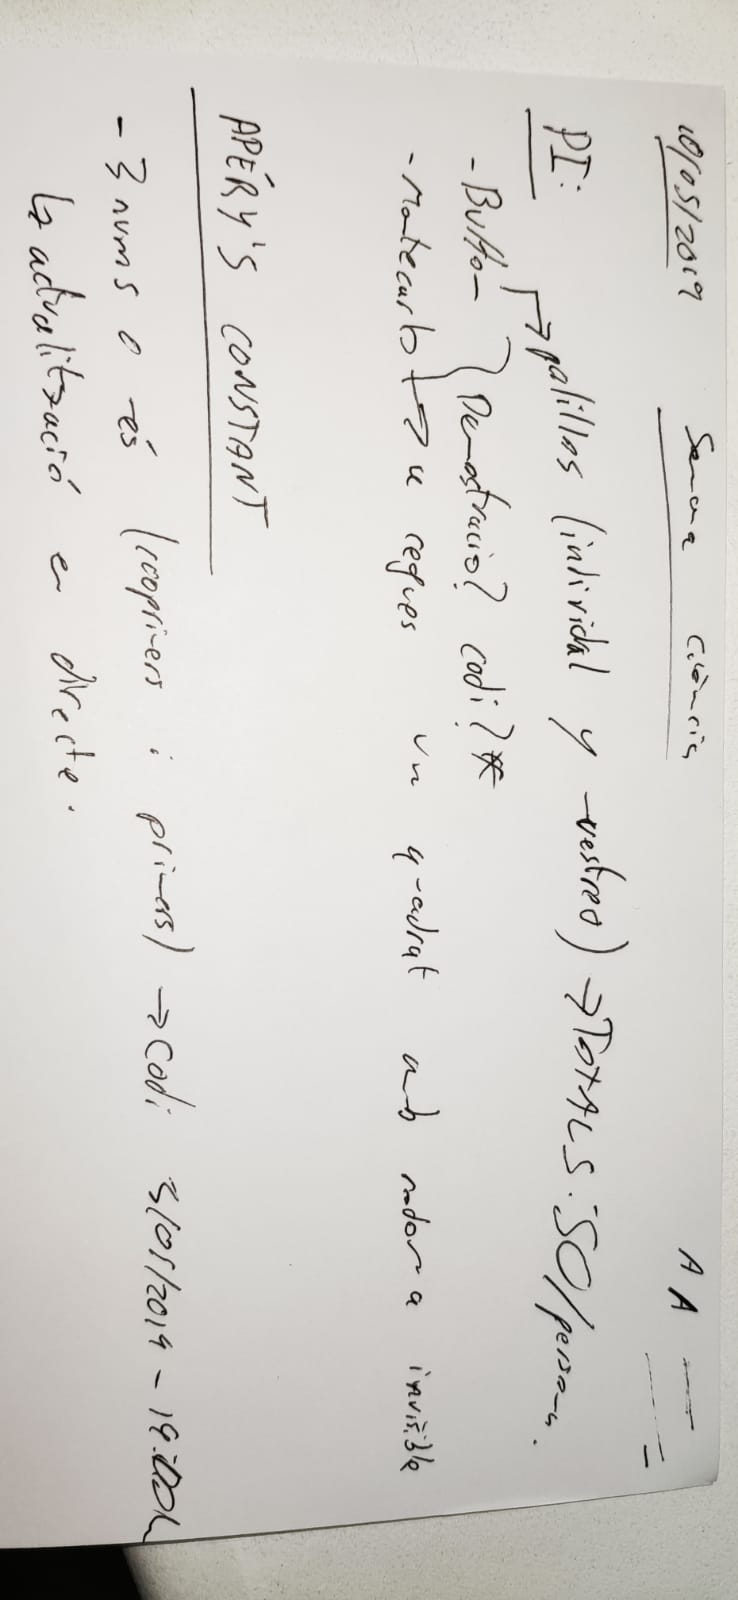 10/05/2019 Setmana Ciència A A
PI: palillos (individal y mestres) → TOTALS: 50/persona.
- Buffon } Demostració? codi? *
- Montecarlo → 4 cegues un quadrat amb rodona invisible
APÉRY'S CONSTANT
- 3 nums o és (cooprimers i primers) → codi 3/05/2019 - 19:00h
↳ actualització en directe.